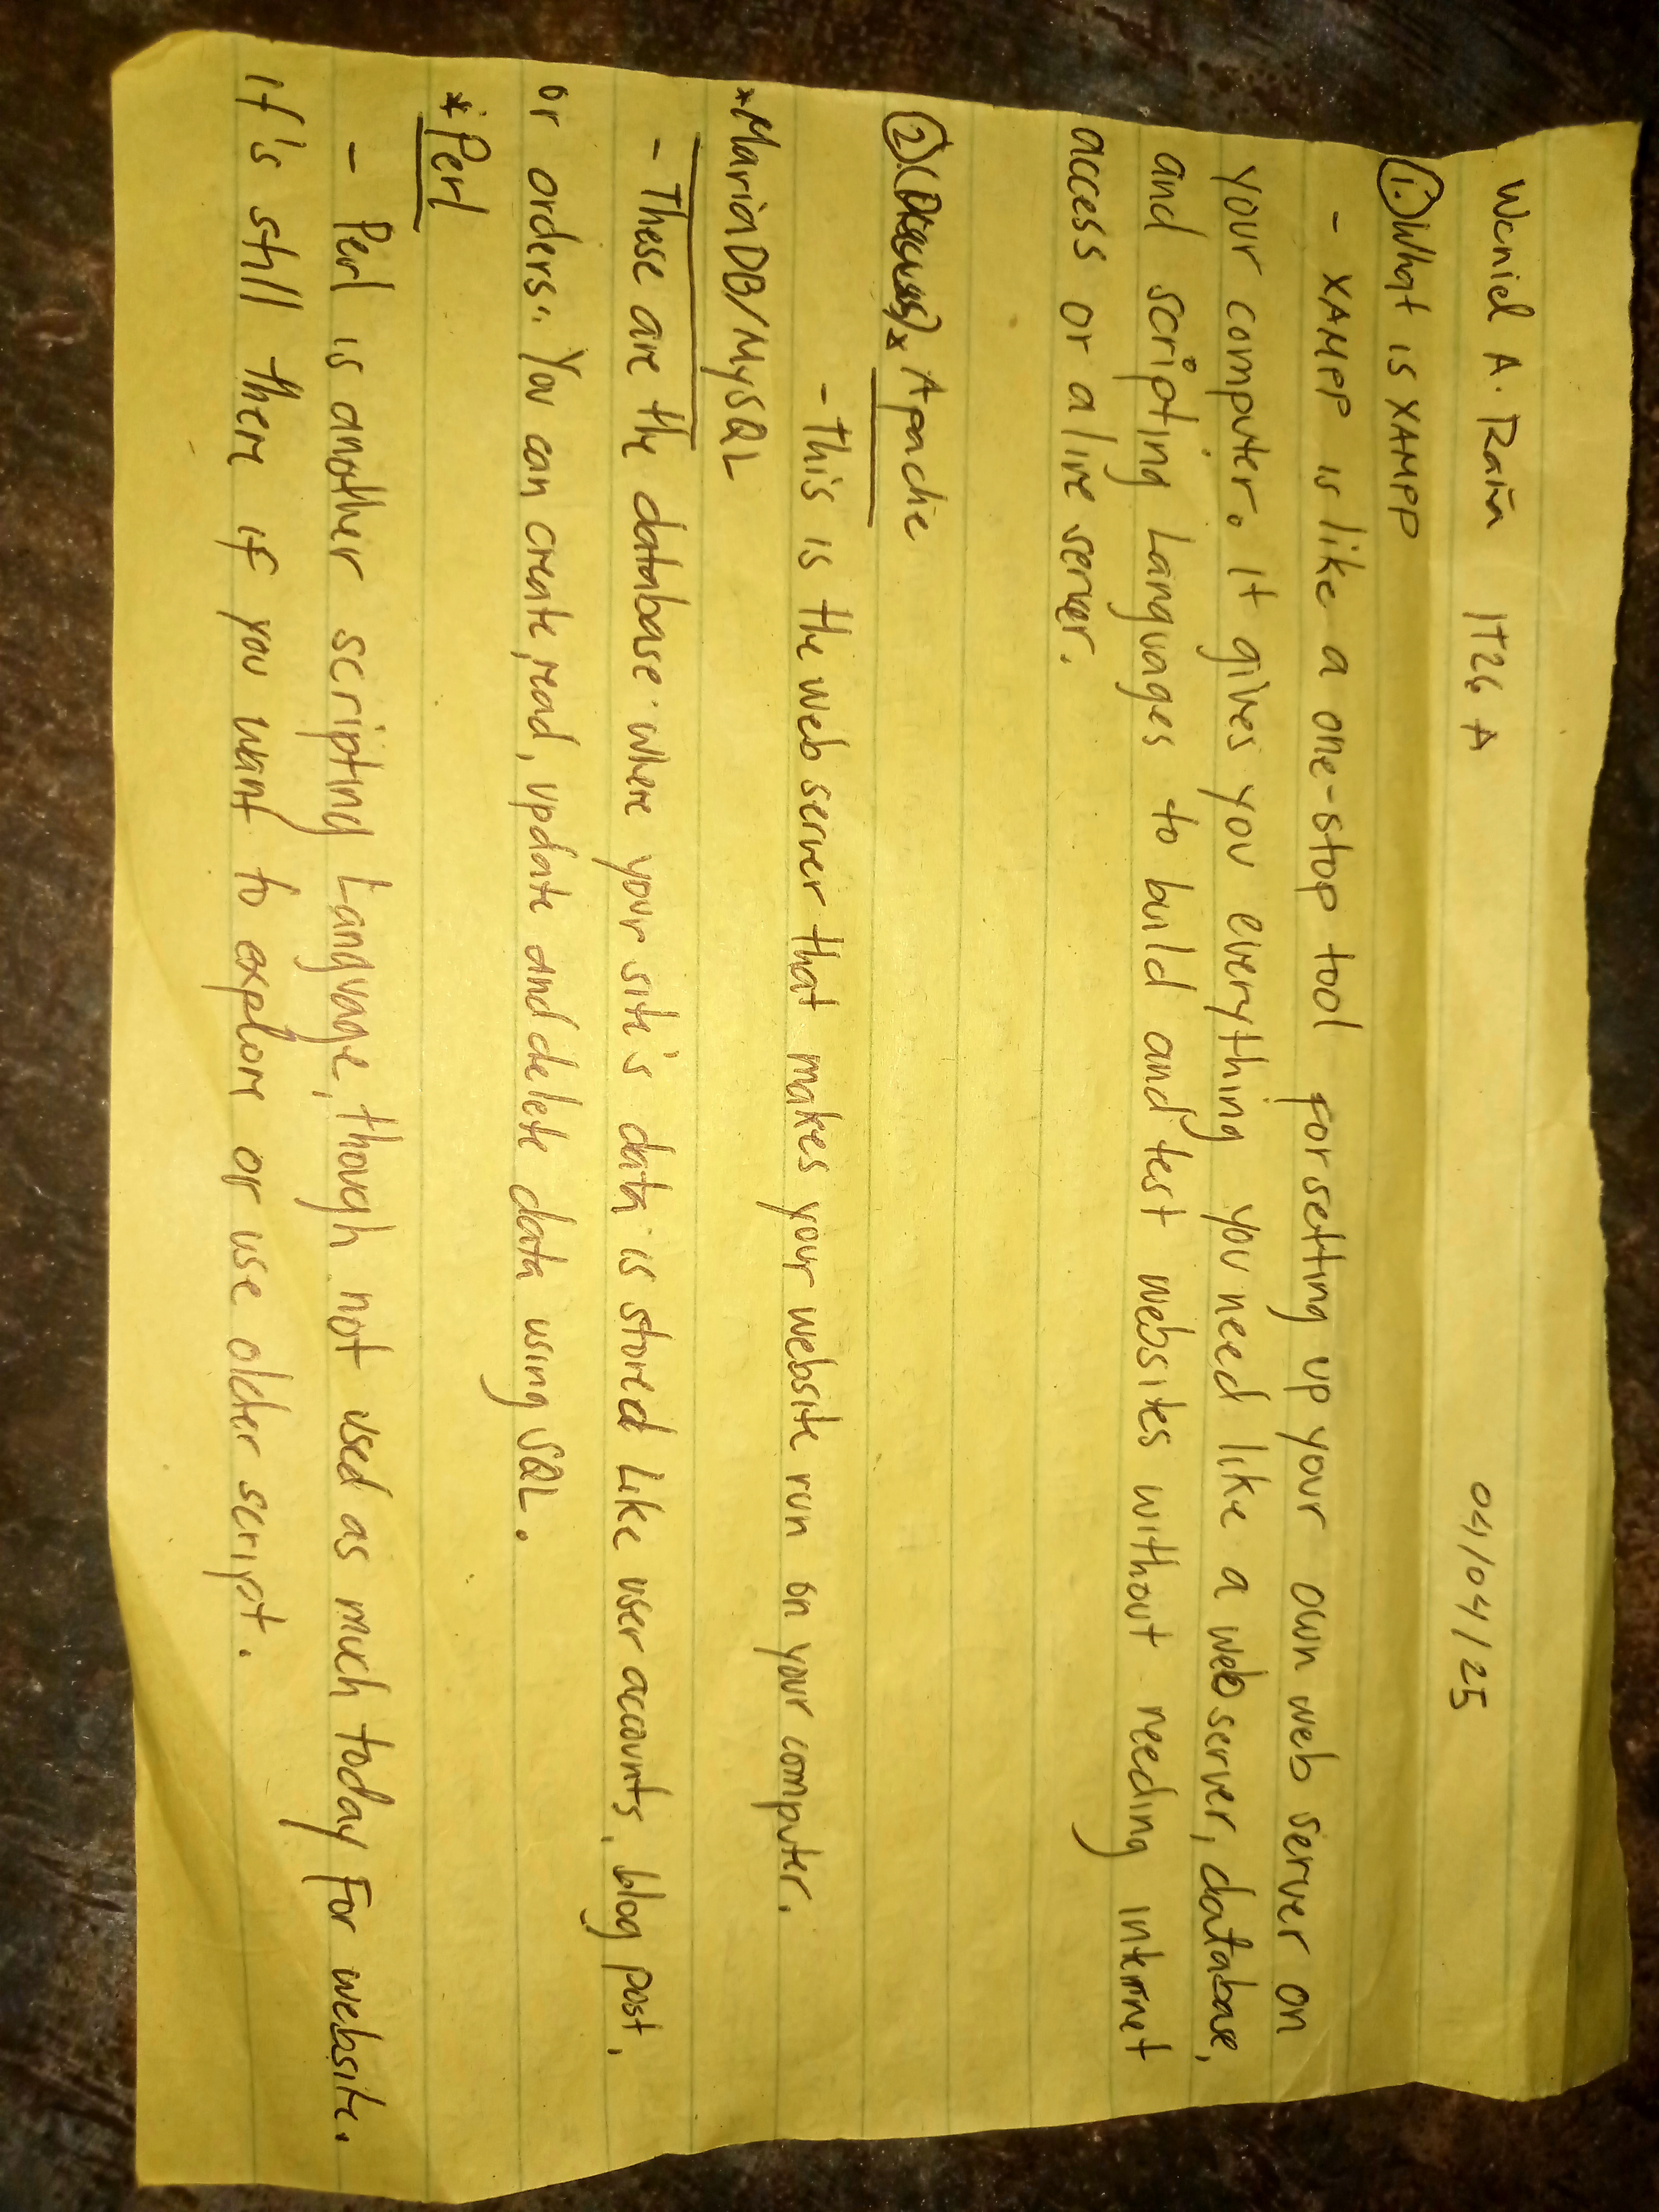 Weniel A. Raña IT26 A 04/04/25
1. What is XAMPP
- XAMPP is like a one-stop tool for setting up your own web server on
your computer. It gives you everything you need like a web server, database,
and scripting Languages to build and test websites without needing internet
access or a live server.
2. * Apache
- this is the web server that makes your website run on your computer.
*MariaDB/MySQL
- These are the database where your site's data is stored Like user accounts, blog post,
or orders. You can create, read, update and delete data using SQL.
* Perl
- Perl is another scripting Language, though not used as much today For website.
it's still there if you want to explore or use older script.